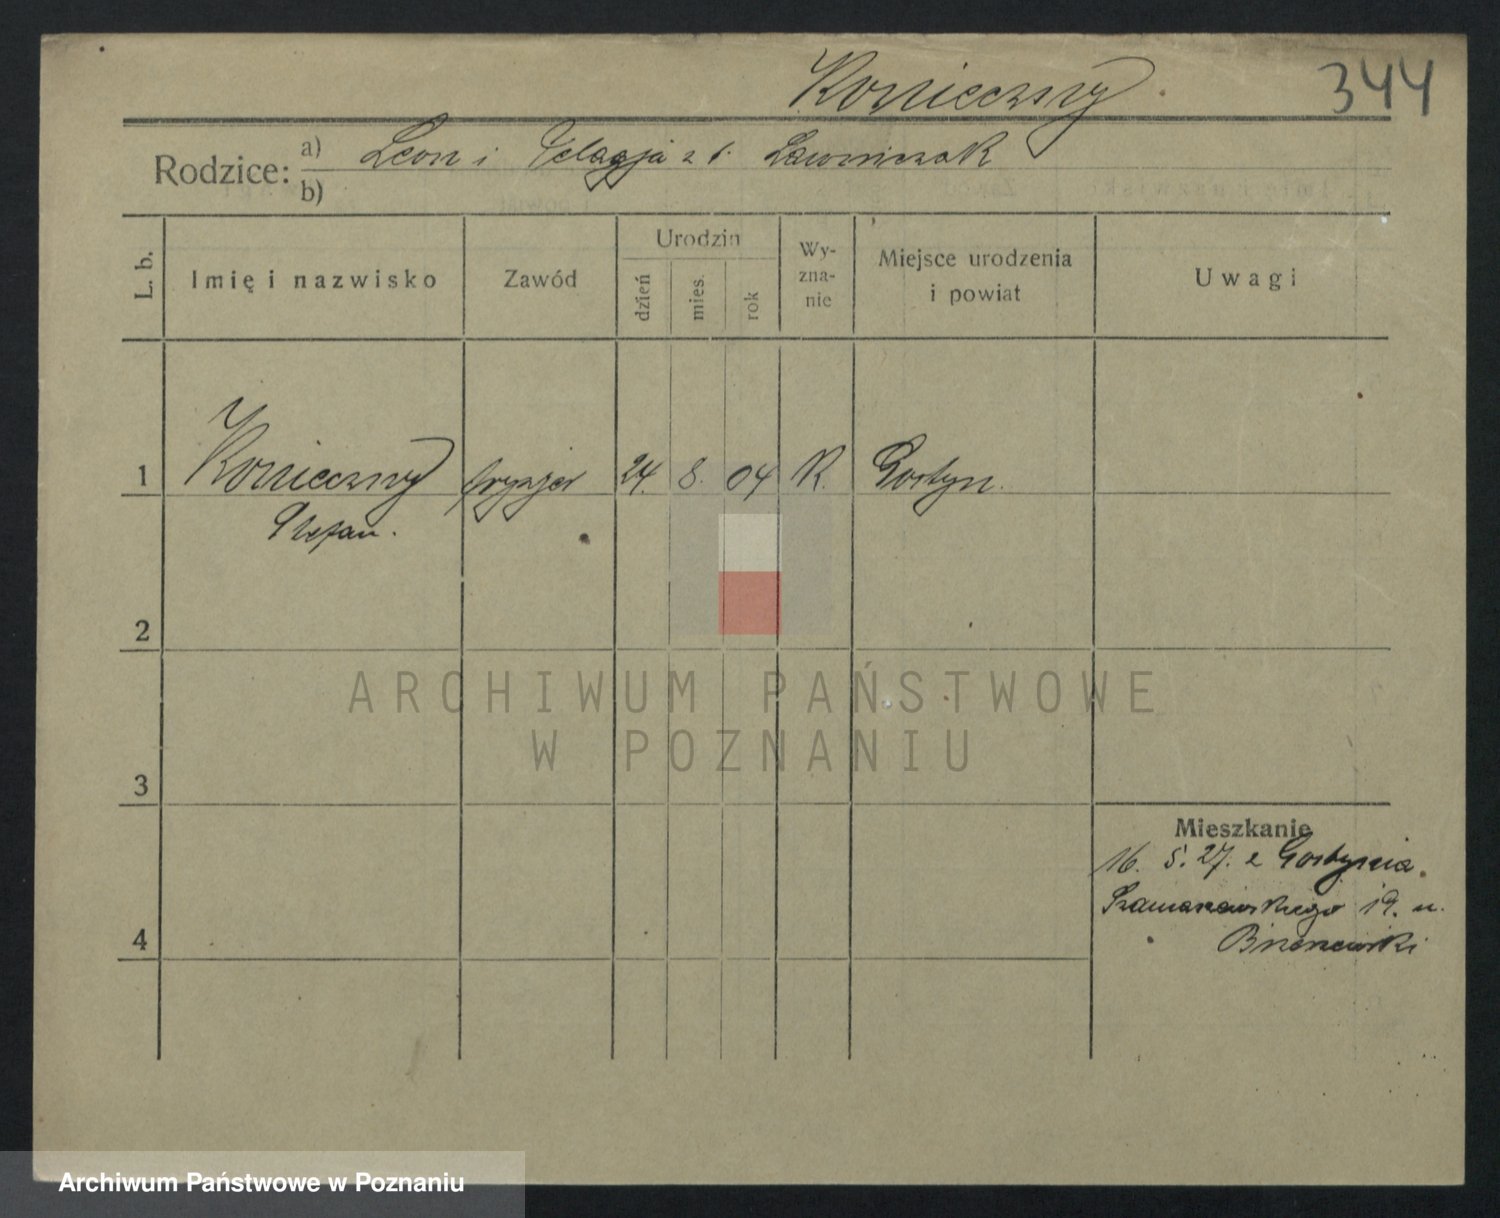 Konieczny 344
Rodzice: a) Leon i Pelagja z d. Ławniczak
b)
L. b. Imię i nazwisko Zawód Urodzin dzień mies. rok Wyznanie Miejsce urodzenia i powiat Uwagi
1 Konieczny fryzjer 24. 8. 04 K. Gostyn.
Stefan.
2
ARCHIWUM PAŃSTWOWE
W POZNANIU
3
Mieszkanie
16. 5. 27. z Gostynia.
19. u.
4
Archiwum Państwowe w Poznaniu